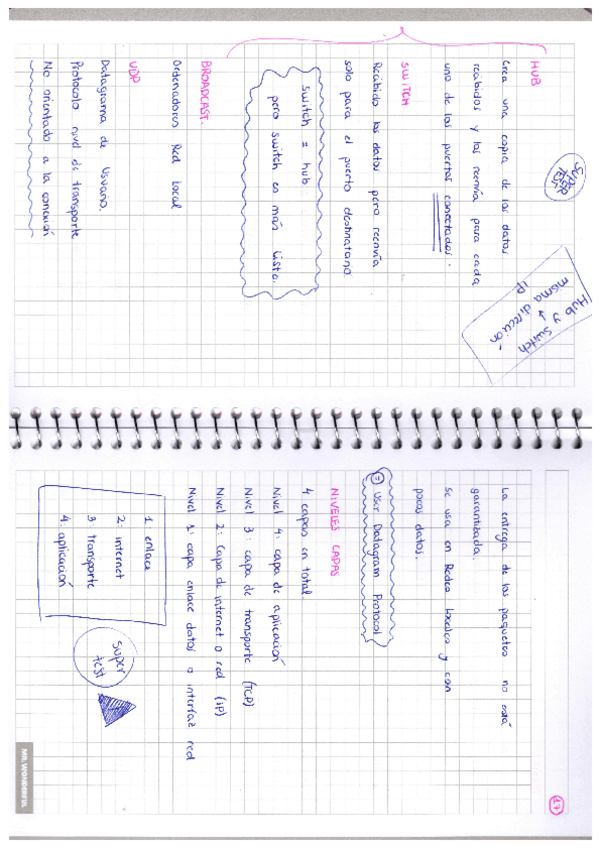 HUB
Crea una copia de los datos
recibidos y los reenvía para cada
uno de los puertos conectados.
SUPER
TEST
Hub y switch
↓
misma dirección
IP
SWITCH
Recibido los datos pero reenvía
solo para el puerto destinatario
switch = hub
pero switch es más listo.
BROADCAST.
Ordenadores Red Local
UDP
Datagrama de Usuario.
Protocolo nivel de transporte
No orientado a la conexión
17
La entrega de los paquetes no está
garantizada.
Se usa en Redes Locales y con
pocos datos.
= User Datagram Protocol
NIVELES CAPAS
4 capas en total.
Nivel 4: capa de aplicación
Nivel 3: capa de transporte (TCP)
Nivel 2: Capa de internet o red (IP)
Nivel 1: capa enlace datos o interfaz red
1. enlace
2. internet
3. transporte
4. aplicación
super
test
MR. WONDERFUL